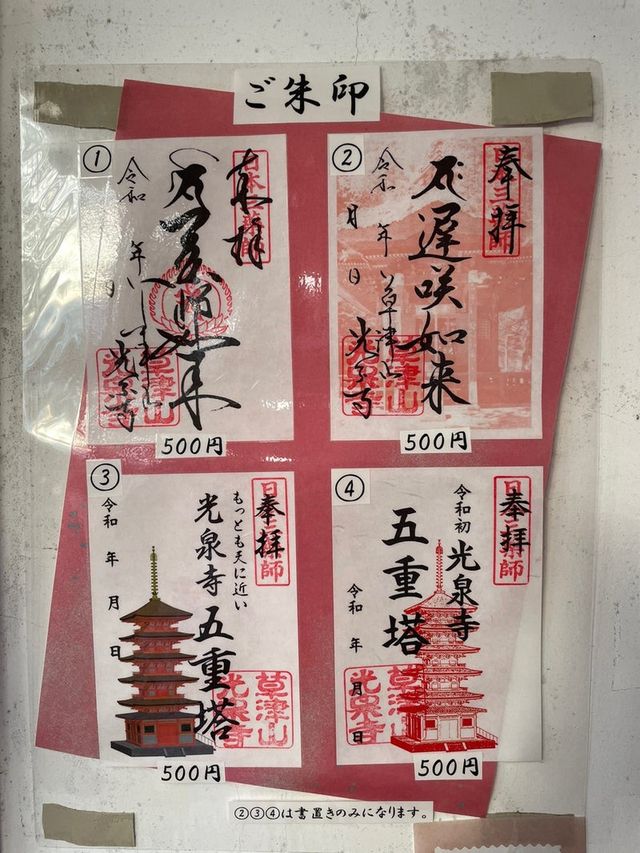 ご朱印
①
奉拝
日本三薬師
令和
年
日
光泉寺
草津山
光泉寺
500円
②
奉拝
遅咲如来
令和
年
月
日
草津山
光泉寺
草津山
光泉寺
500円
③
奉拝
もっとも天に近い
光泉寺
五重塔
令和
年
月
日
草津山
光泉寺
500円
④
奉拝
令和初
光泉寺
五重塔
令和
年
月
日
草津山
光泉寺
500円
②③④は書置きのみになります。